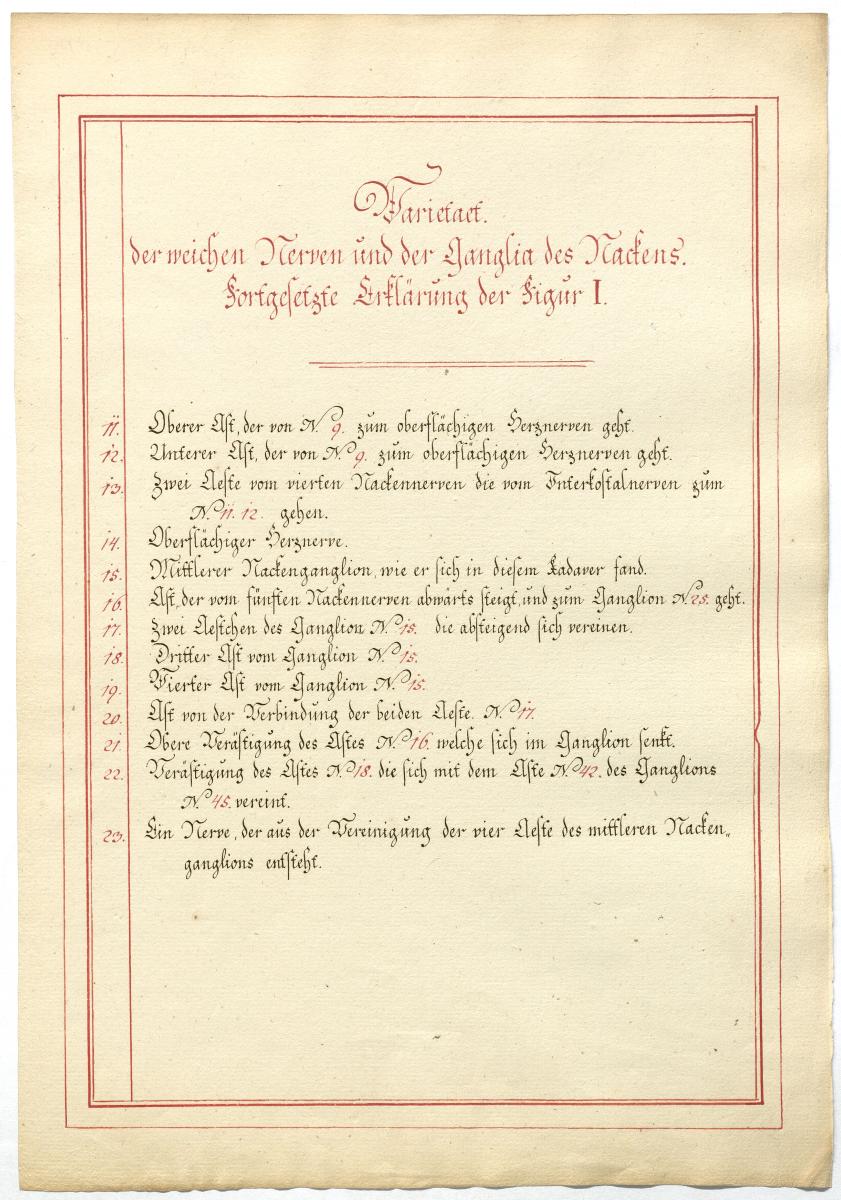 Varietaet.
der weichen Nerven und der Ganglia des Nackens.
Fortgesetzte Erklärung der Figur I.
11. Oberer Ast, der von N. 9. zum oberflächigen Herznerven geht.
12. Unterer Ast, der von N. 9. zum oberflächigen Herznerven geht.
13. Zwei Aeste vom vierten Nackennerven die vom Interkostalnerven zum
N. 11. 12. gehen.
14. Oberflächiger Herznerve.
15. Mittlerer Nackenganglion, wie er sich in diesem Kadaver fand.
16. Ast, der vom fünften Nackennerven abwärts steigt, und zum Ganglion N. 25. geht.
17. Zwei Aestchen des Ganglion N. 15. die absteigend sich vereinen.
18. Dritter Ast vom Ganglion N. 15.
19. Vierter Ast vom Ganglion N. 15.
20. Ast von der Verbindung der beiden Aeste. N. 17.
21. Obere Verästigung des Astes N. 16. welche sich im Ganglion senkt.
22. Verästigung des Astes N. 18. die sich mit dem Aste N. 42. des Ganglions
N. 45. vereint.
23. Ein Nerve, der aus der Vereinigung der vier Aeste des mittleren Nacken„
ganglions entsteht.